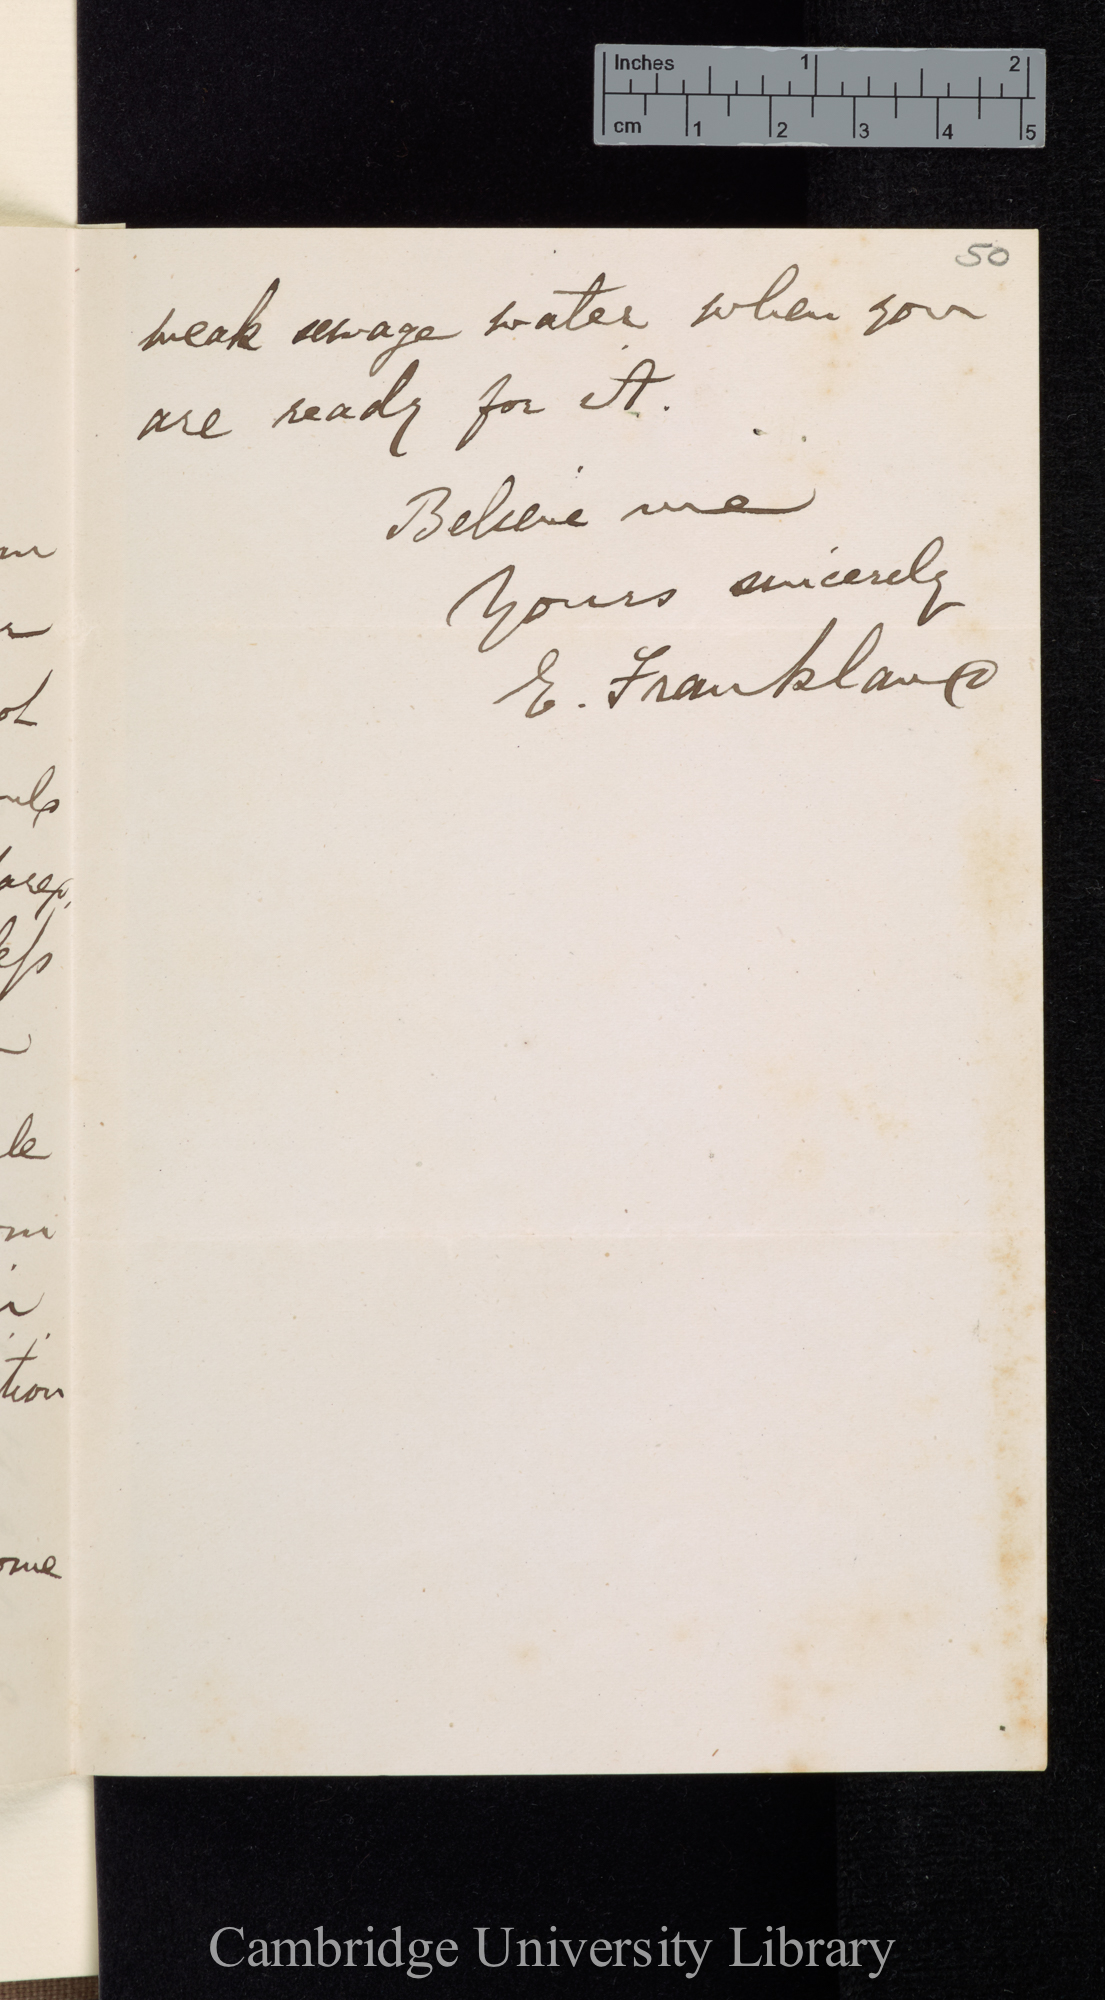 Inches 1 2
cm 1 2 3 4 5
50
weak sewage water when you
are ready for it.
Believe me
Yours sincerely
E. Frankland
le
tion
ome
Cambridge University Library